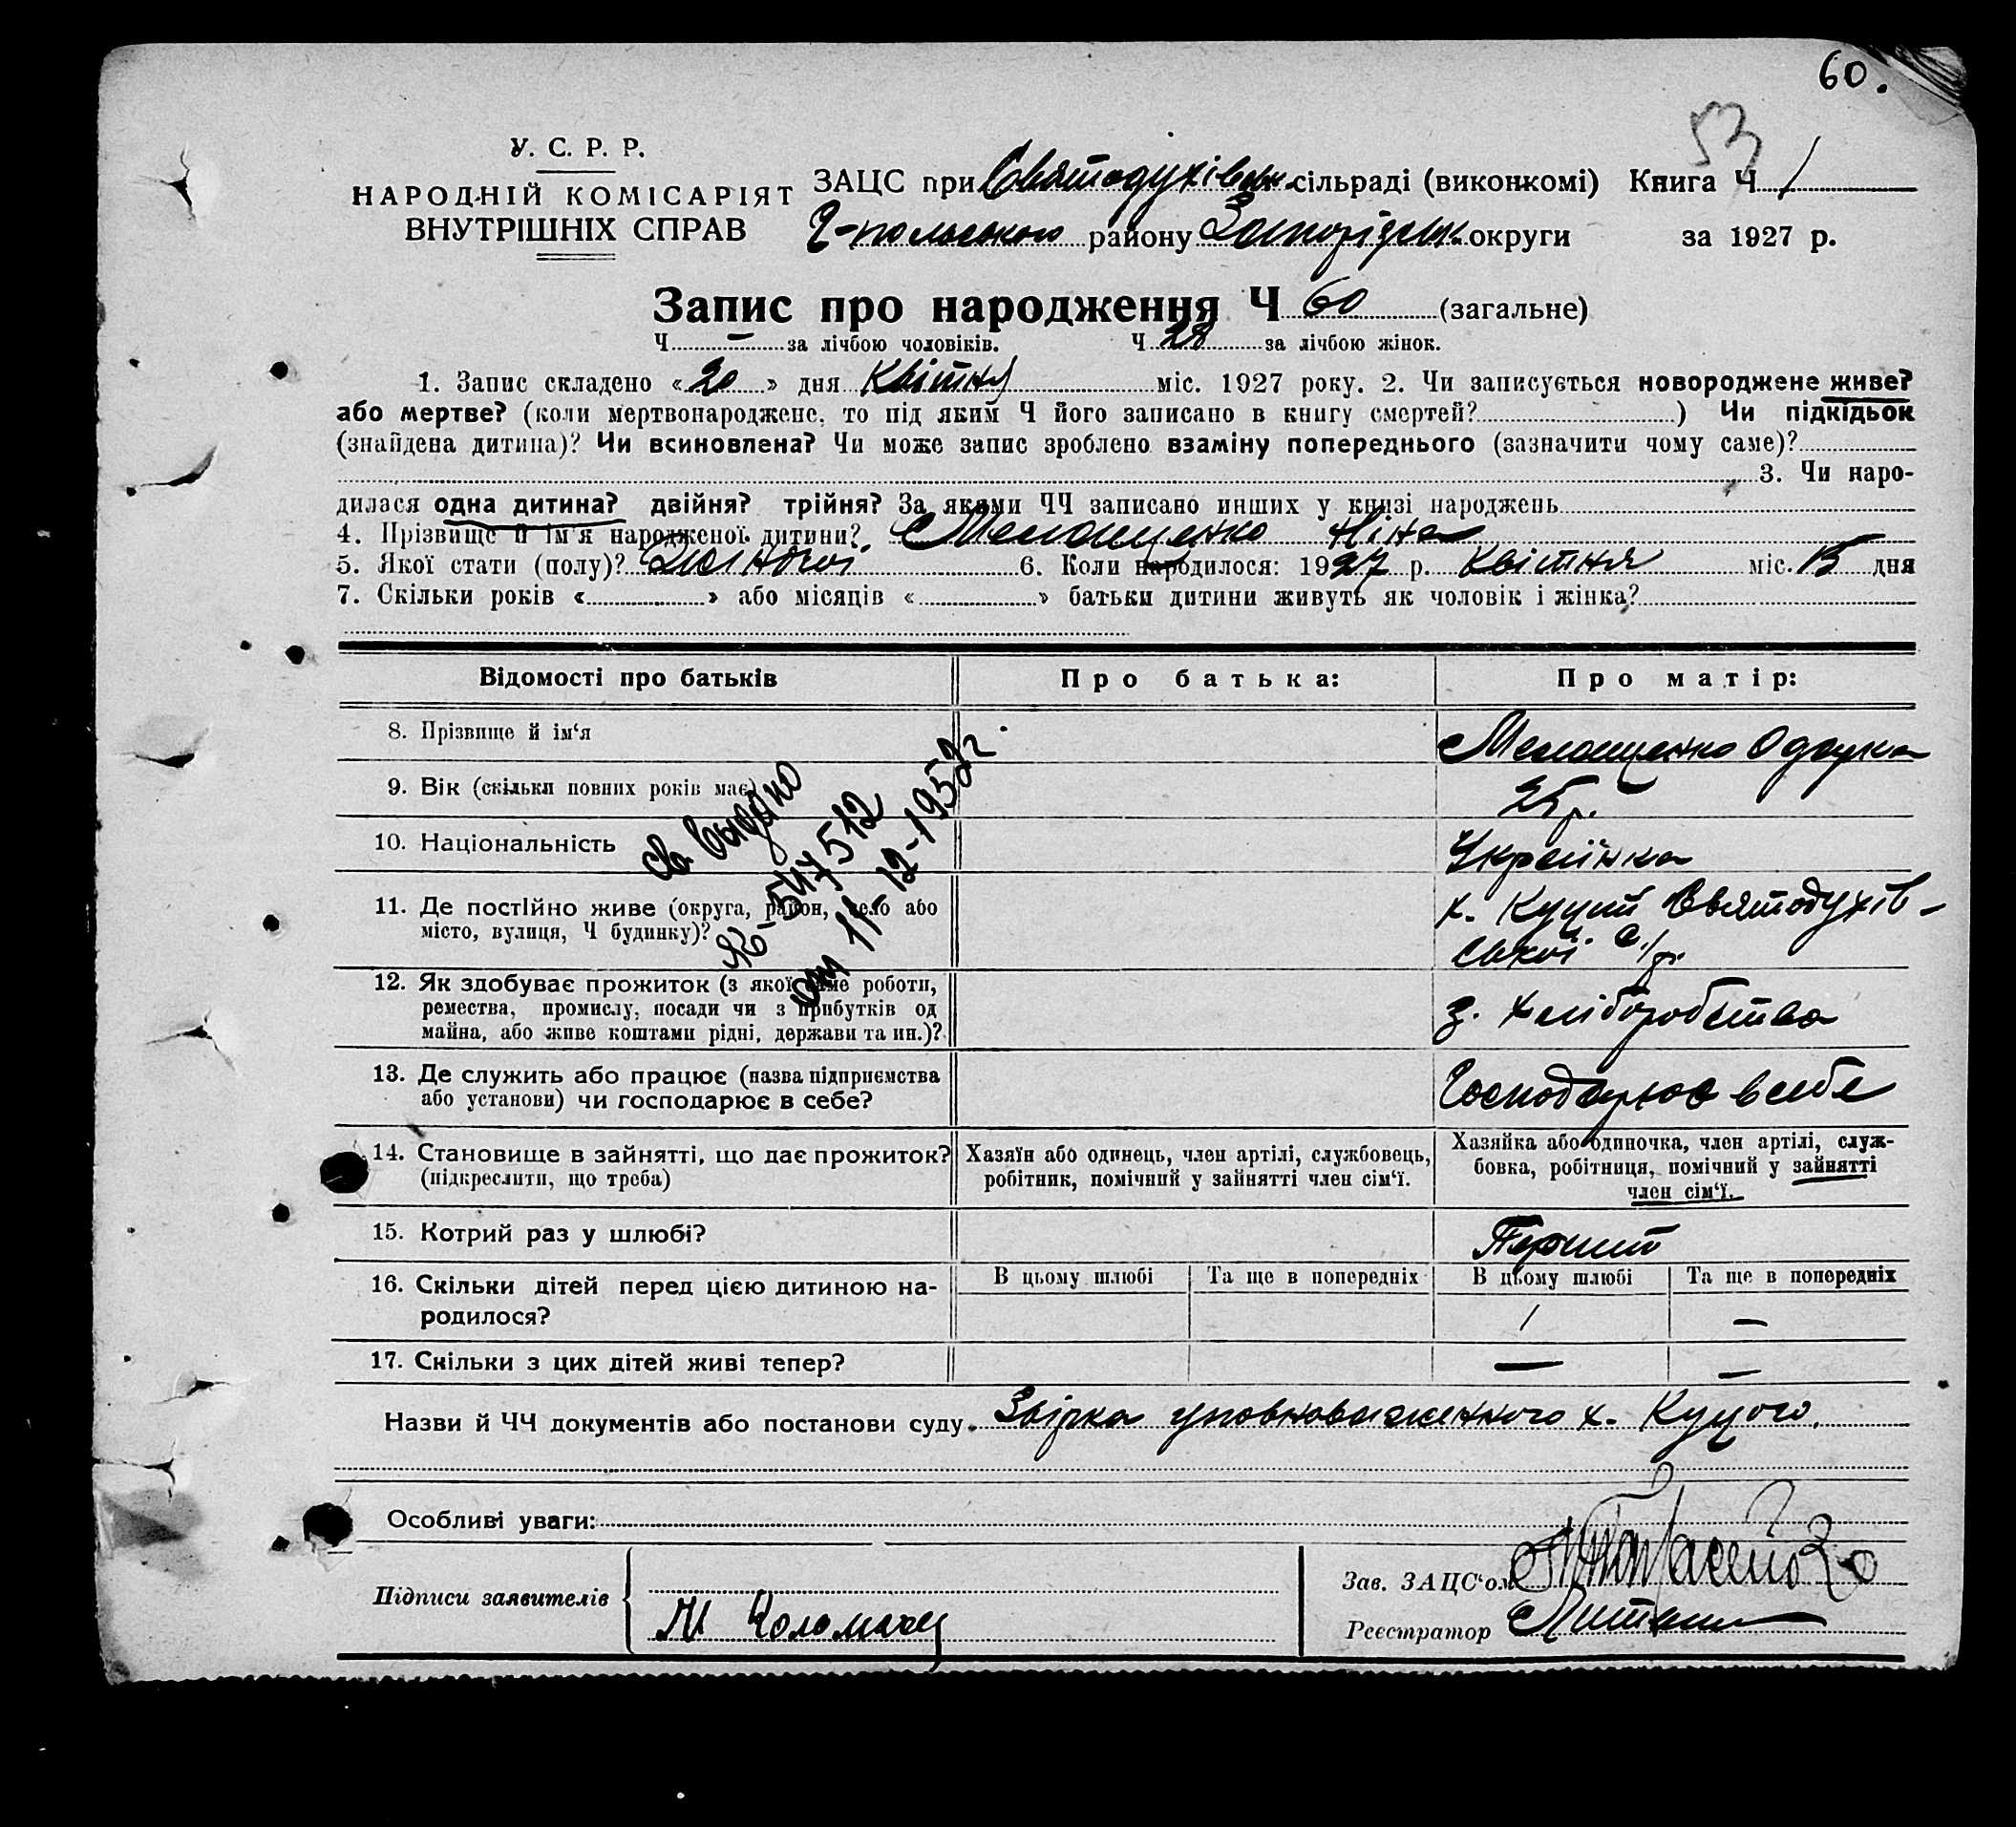 60.
53
У. С. Р. Р.
НАРОДНІЙ КОМІСАРІЯТ
ВНУТРІШНІХ СПРАВ
ЗАЦС при Святодухівськ. сільраді (виконкомі) Книга Ч 1
Г-польського району Запорізьк. округи за 1927 р.
Запис про народження Ч 60 (загальне)
Ч — за лічбою чоловіків. Ч 28 за лічбою жінок.
1. Запис складено «20» дня Квітня міс. 1927 року. 2. Чи записується новороджене живе?
або мертве? (коли мертвонароджене, то під яким Ч його записано в книгу смертей? ) Чи підкідьок
(знайдена дитина)? Чи всиновлена? Чи може запис зроблено взаміну попереднього (зазначити чому саме)?
3. Чи наро-
дилася одна дитина? двійня? трійня? За якими ЧЧ записано инших у книзі народжень
4. Прізвище й ім'я народженої дитини? Ніна
5. Якої стати (полу)? Жіночої 6. Коли народилося: 1927 р. Квітня міс. 15 дня
7. Скільки років « » або місяців « » батьки дитини живуть як чоловік і жінка?
Відомості про батьків Про батька: Про матір:
8. Прізвище й ім'я Одарка
9. Вік (скільки повних років має) 25 р.
10. Національність Українка
11. Де постійно живе (округа, район, село або
місто, вулиця, Ч будинку)?
х. Куций Святодухів-
ської с/р.
12. Як здобуває прожиток (з якої саме роботи,
ремества, промислу, посади чи з прибутків од
майна, або живе коштами рідні, держави та ин.)?
з. хліборобства
13. Де служить або працює (назва підприємства
або установи) чи господарює в себе?
Господарює в себе
14. Становище в зайнятті, що дає прожиток?
(підкреслити, що треба)
Хазяїн або одинець, член артілі, службовець,
робітник, помічний у зайнятті член сім'ї.
Хазяйка або одиночка, член артілі, служ-
бовка, робітниця, помічний у зайнятті
член сім'ї.
15. Котрий раз у шлюбі? Перший
16. Скільки дітей перед цією дитиною на-
родилося?
В цьому шлюбі Та ще в попередніх В цьому шлюбі Та ще в попередніх
1 —
17. Скільки з цих дітей живі тепер? — —
св. выдано
547512
от 11-12-1952 г.
Назви й ЧЧ документів або постанови суду Звірка уповноваженного х. Куцого.
Особливі уваги:
Підписи заявителів
Зав. ЗАЦС'ом
Реєстратор